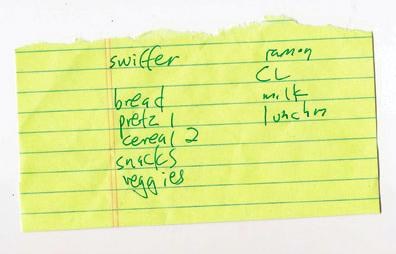 swiffer
bread
pretz 1
cereal 2
snacks
veggies
ramon
CL
milk
lunchm